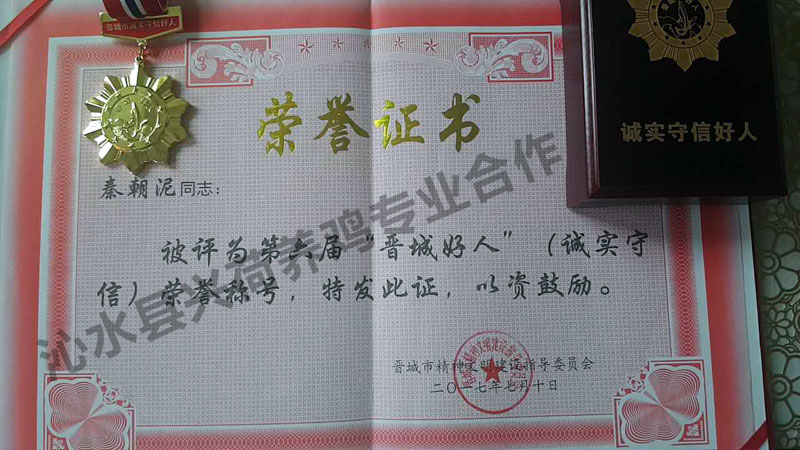 晋城市诚实守信好人
荣誉证书
诚实守信好人
秦朝泥同志：
被评为第六届“晋城好人”（诚实守
信）荣誉称号，特发此证，以资鼓励。
晋城市精神文明建设指导委员会
二〇一七年七月十日
沁水县兴荷养鸡专业合作